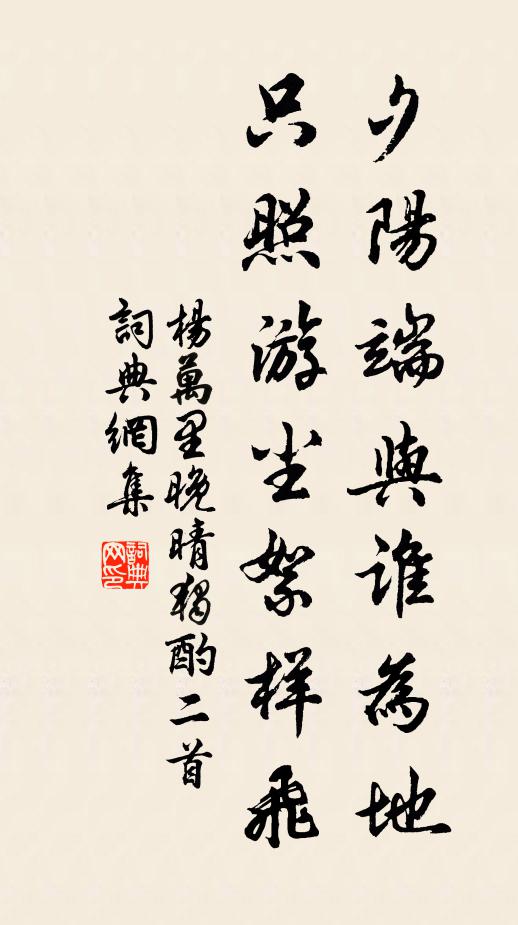 夕陽端與誰為地
只照游尘絮样飛
楊萬里晚晴獨酌二首
詞典網集
詞典网印